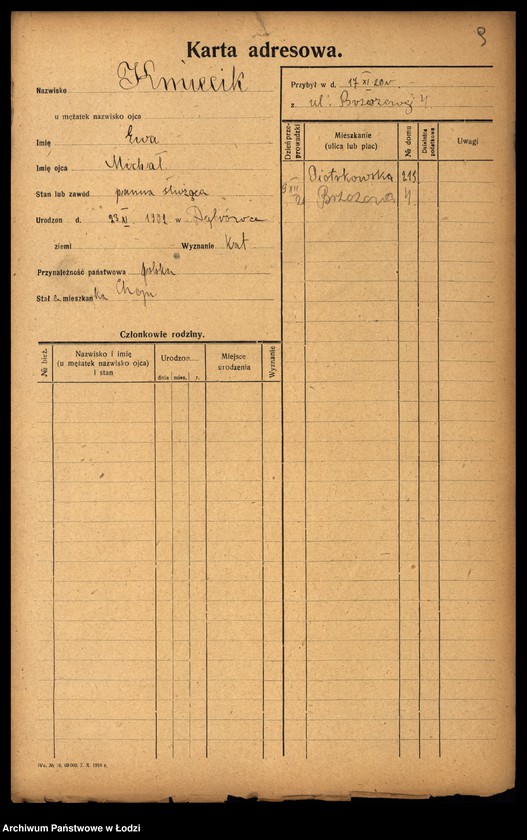 9
Karta adresowa.
Nazwisko Kmiecik
u mężatek nazwisko ojca
Imię Ewa
Imię ojca Michał
Stan lub zawód panna służąca
Urodzon d. 23 XI 1902 w Dąbrowa
ziemi Wyznanie Kat
Przynależność państwowa polska
Stał mieszkanka Chojn
Członkowie rodziny.
№ bież. Nazwisko i imię (u mężatek nazwisko ojca) i stan Urodzon.... dnia mies. r. Miejsce urodzenia Wyznanie
Przybył w d. 17 XI 20 r.
z ul. Brzozowej 4
Dzień przeprowadzki Mieszkanie (ulica lub plac) № domu Dzielnica podatkowa Uwagi
Piotrkowska 213
9 XII 21 Brzozowa 4
Archiwum Państwowe w Łodzi